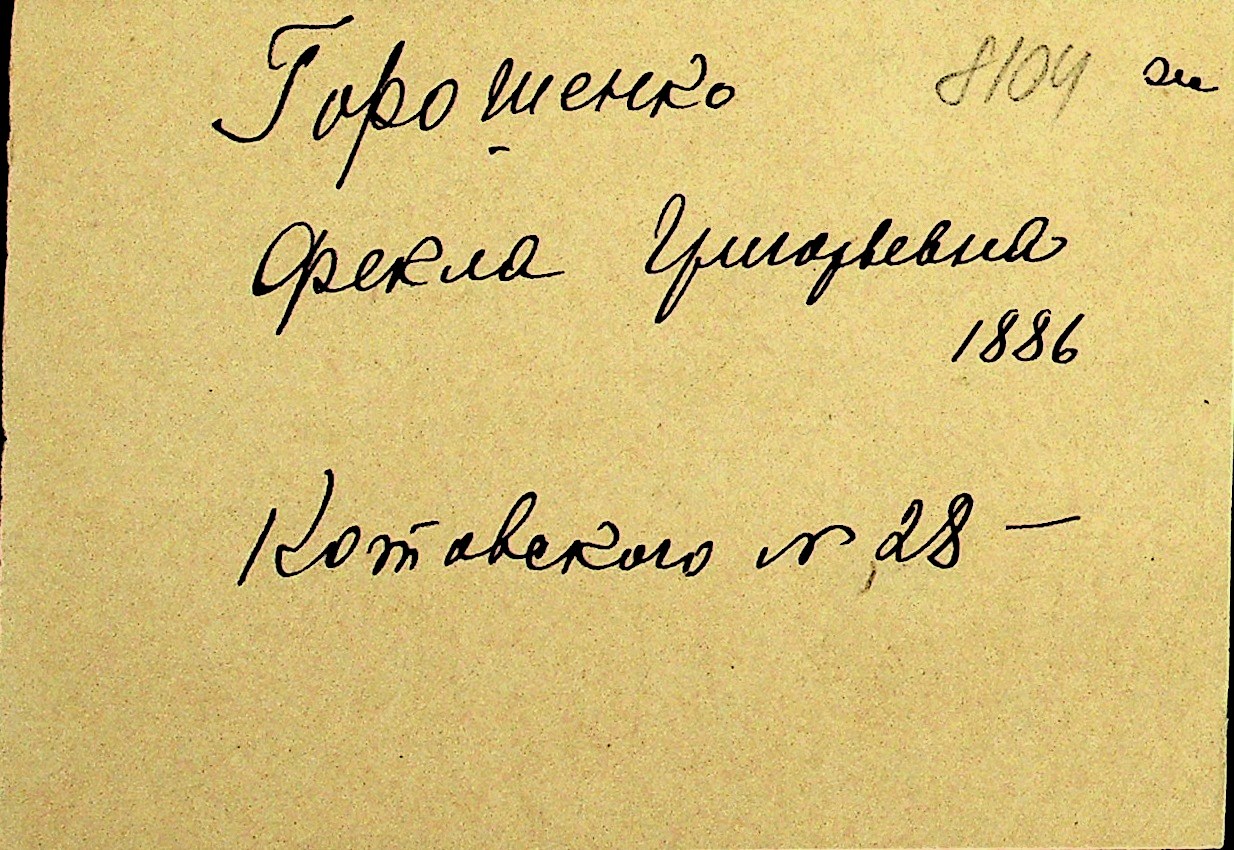 Горошенко 8104
Фекла Григорьевна
1886
Котовского № 28 —